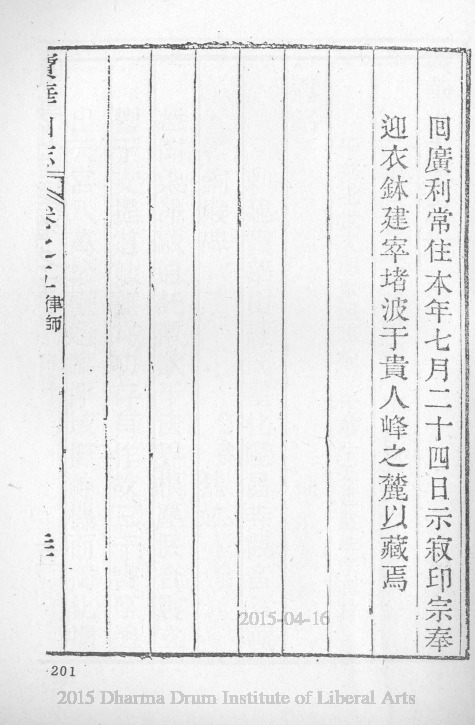 囘廣利常住本年七月二十四日示寂印宗奉
迎衣鉢建窣堵波于貴人峰之麓以藏焉
律師
2015-04-16
201
2015 Dharma Drum Institute of Liberal Arts